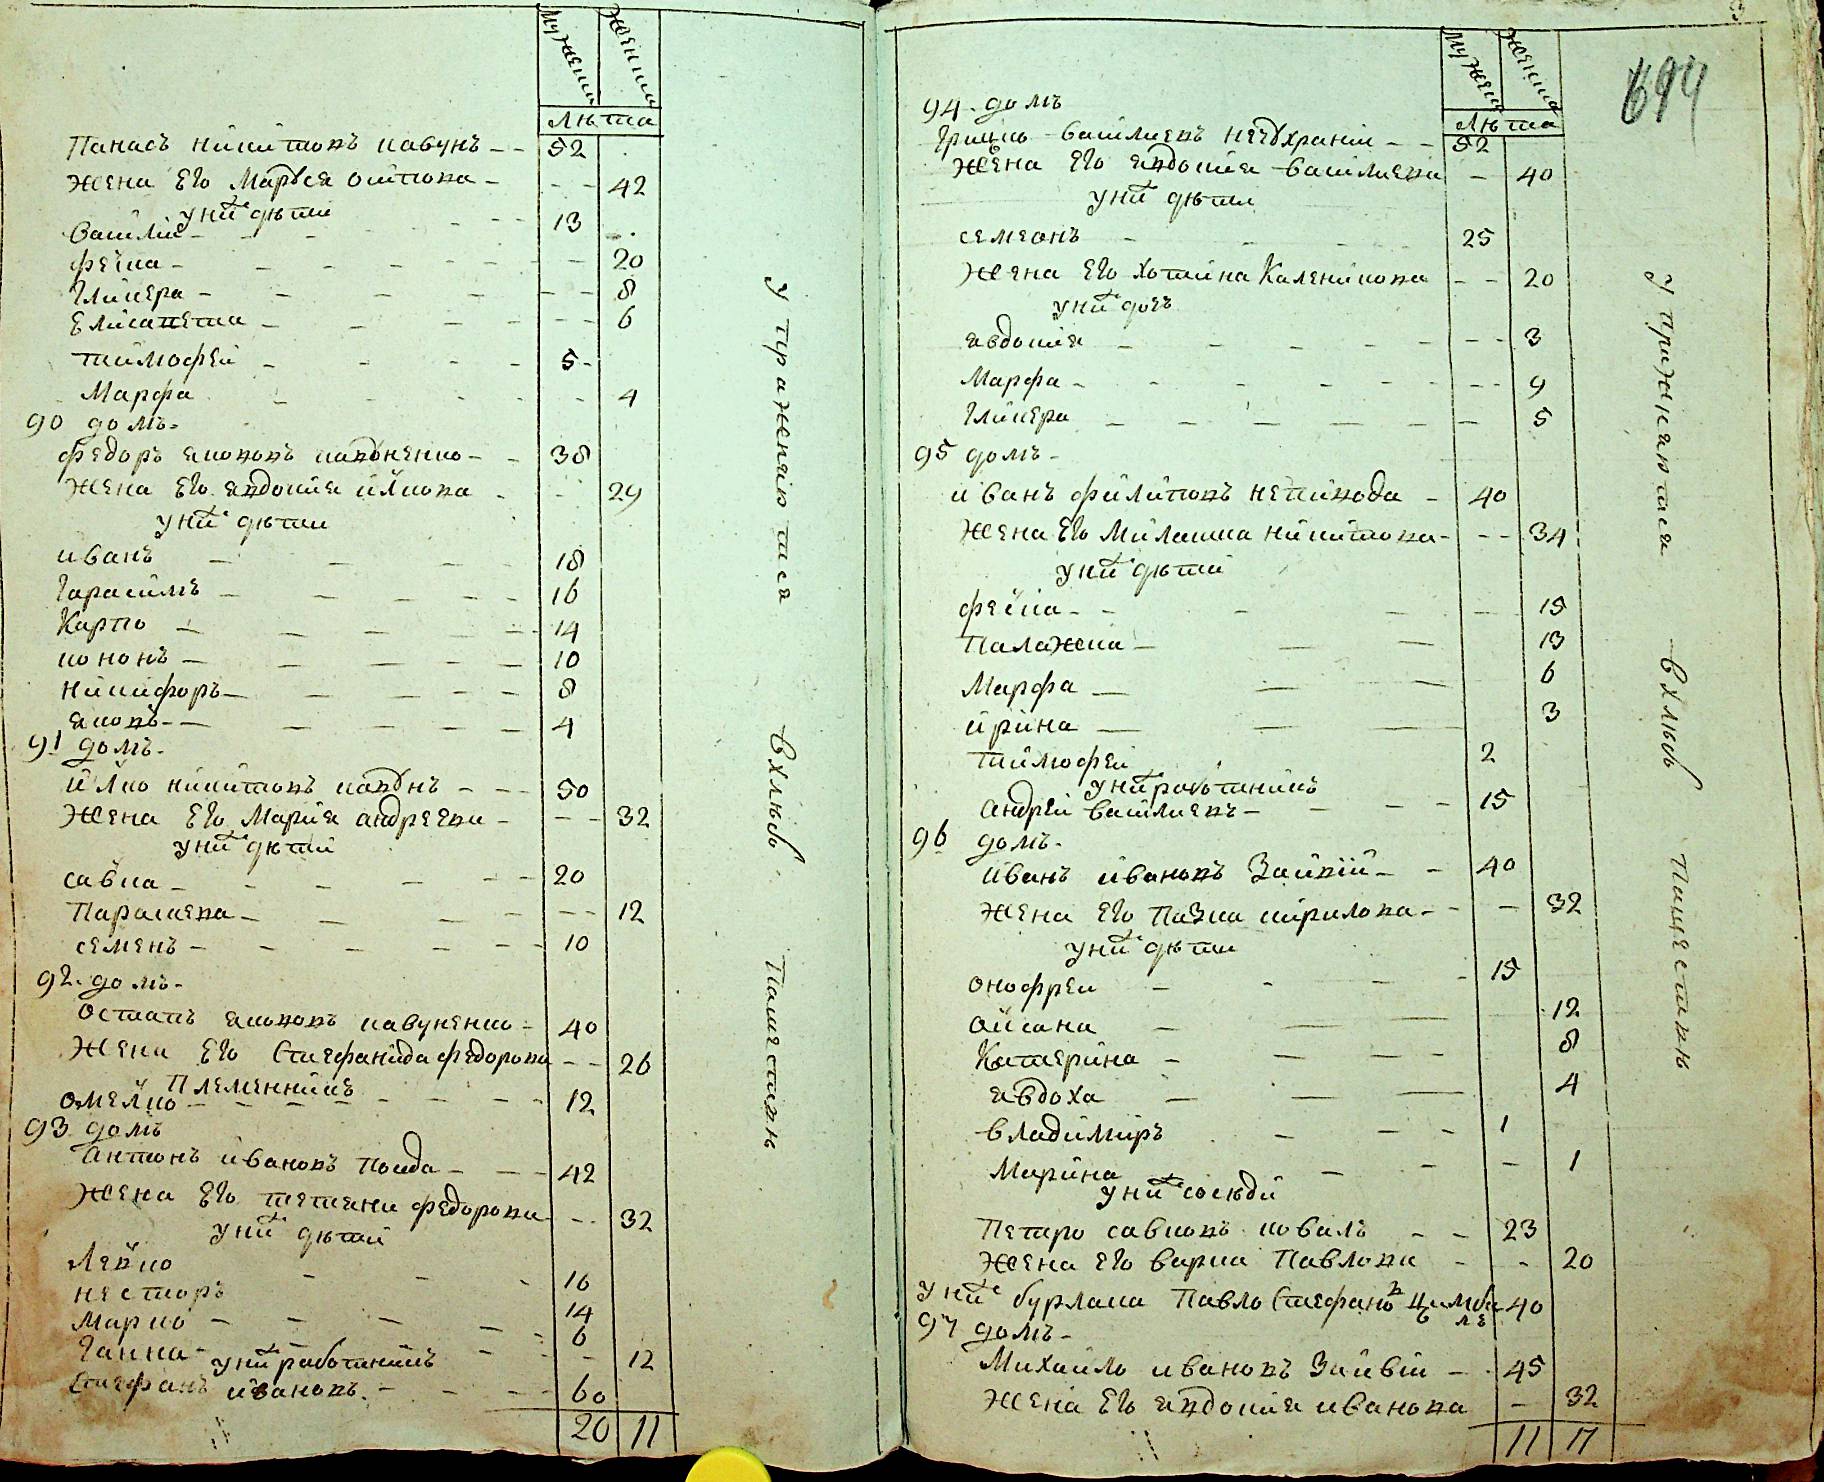 мужеск женска
лѣта
Панасъ никитовъ кавунъ 52
жена его Марѵся осипова 42
у ниⷯ дѣти
василие 13
феѵка 20
Гликера 8
Елисавета 6
тимофей 5
Марфа 4
90 домъ
федоръ якововъ кавуненко 38
жена его явдокия илкова 29
у ниⷯ дѣти
иванъ 18
Гарасимъ 16
Карпо 14
кононъ 10
никифоръ 8
яковъ 4
91 домъ
илко никитовъ кавунъ 50
жена его Мария андреева 32
у ниⷯ дѣти
савка 20
Параскева 12
семенъ 10
92 домъ
остапъ якововъ кавуненко 40
жена его Стефанида федорова 26
Племенникъ
омелко 12
93 домъ
антонъ ивановъ
жена его тетяна федорова 32
у ниⷯ дѣти
Левко 16
несторъ 14
Марко 6
Ганна 12
у ниⷯ работникъ
Стефанъ ивановъ 60
20 11
упражняются в хлѣбопашествѣ
3
694
мужеск женска
лѣта
94 домъ
Грицко василиевъ 52
жена его явдокия василиева 40
у ниⷯ дѣти
семеонъ 25
жена его хотина Каленикова 20
у ниⷯ
явдокия 3
Марфа 9
Гликера 5
95 домъ
иванъ филиповъ непивода 40
жена его Милашка никитова 34
у ниⷯ дѣти
феѵка 15
Палажка 13
Марфа 6
ирина 3
тимофей 2
у ниⷯ работникъ
андрей василиевъ 15
96 домъ
иванъ ивановъ Заикий 40
жена его Пазка кирилова 32
у ниⷯ дѣти
онофрей 15
оксана 12
Катерина 8
явдоха 4
владимиръ 1
Марина 1
у ниⷯ сосѣди
Петро савковъ коваль 23
жена его варка Павлова 20
у ниⷯ бурлака Павло Стефановъ Цимбалъ 40
97 домъ
Михайло ивановъ 45
жена его явдокия иванова 32
11 17
упражняются в хлѣбопашествѣ